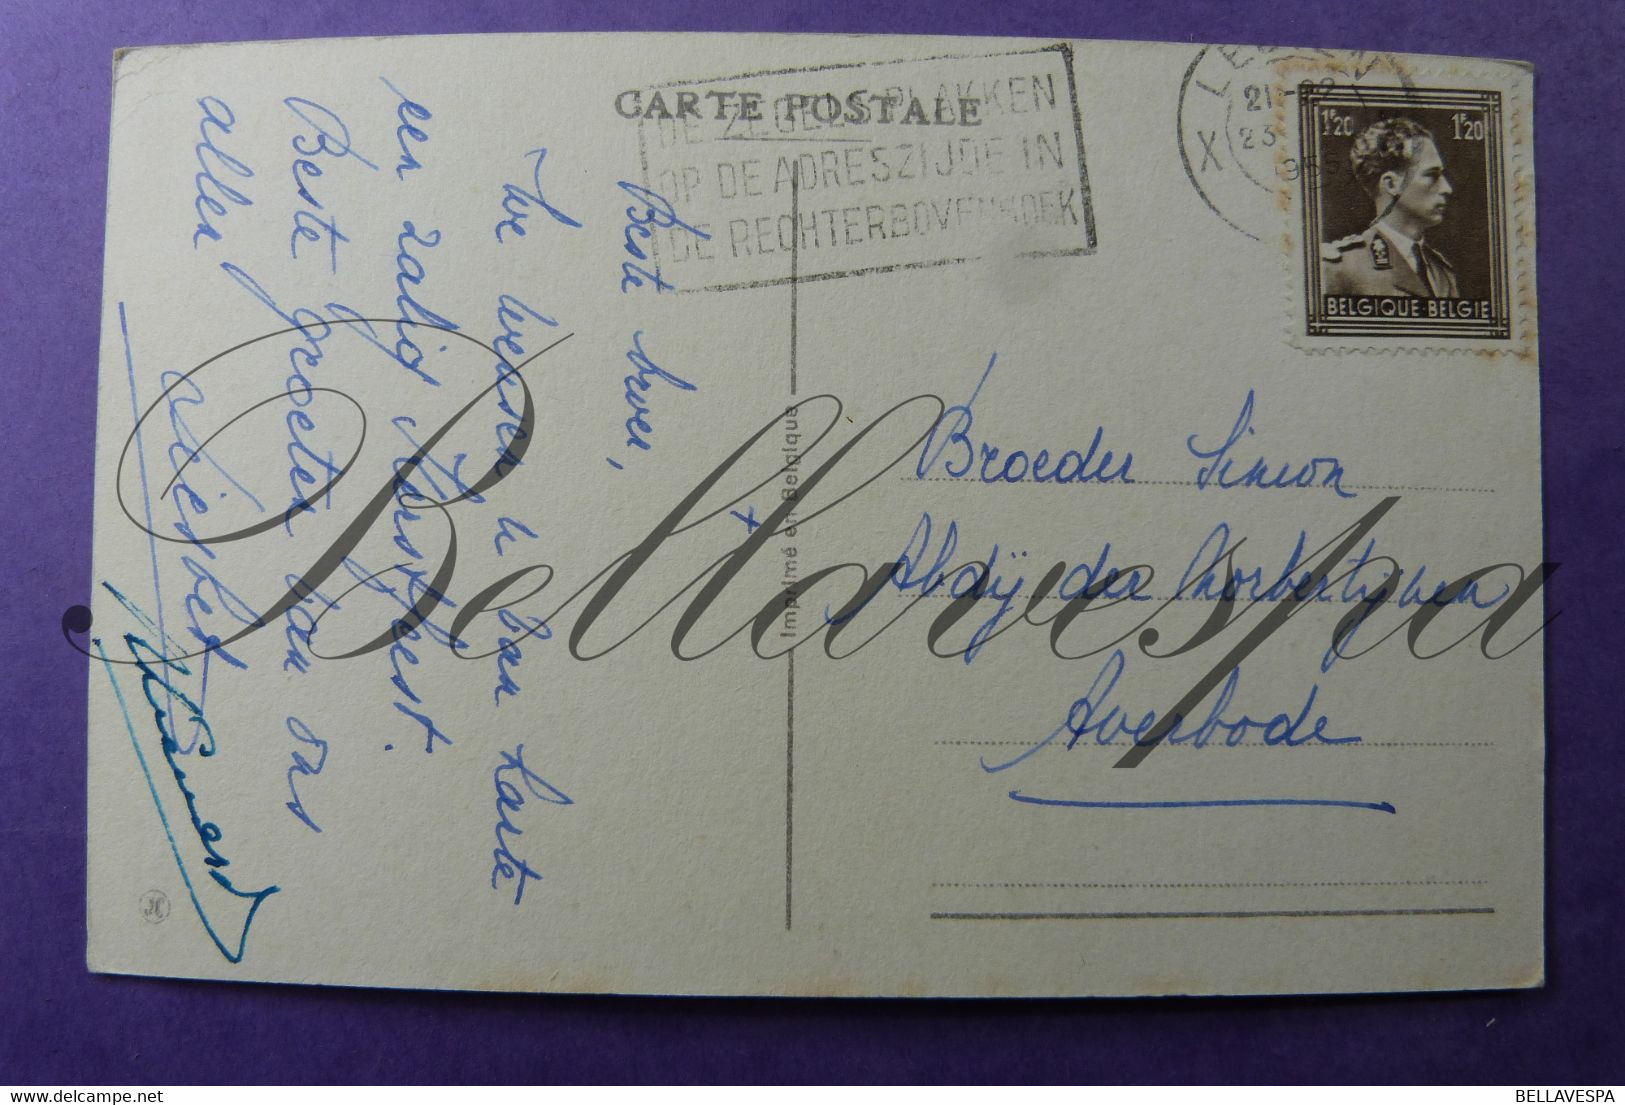 CARTE POSTALE
DE ZEGELS PLAKKEN
OP DE ADRESZIJDE IN
DE RECHTERBOVENHOEK
X
21-22
23
1955
1F20 1F20
BELGIQUE-BELGIE
Beste broer,
+
We wensen u van harte
een zalig Kerstfeest.
Beste groeten van ons
allen
Liesbet
Imprimé en Belgique
Broeder Simon
Abdij der Norbertijnen
Averbode
JC
Bellavespa
BELLAVESPA
delcampe.net